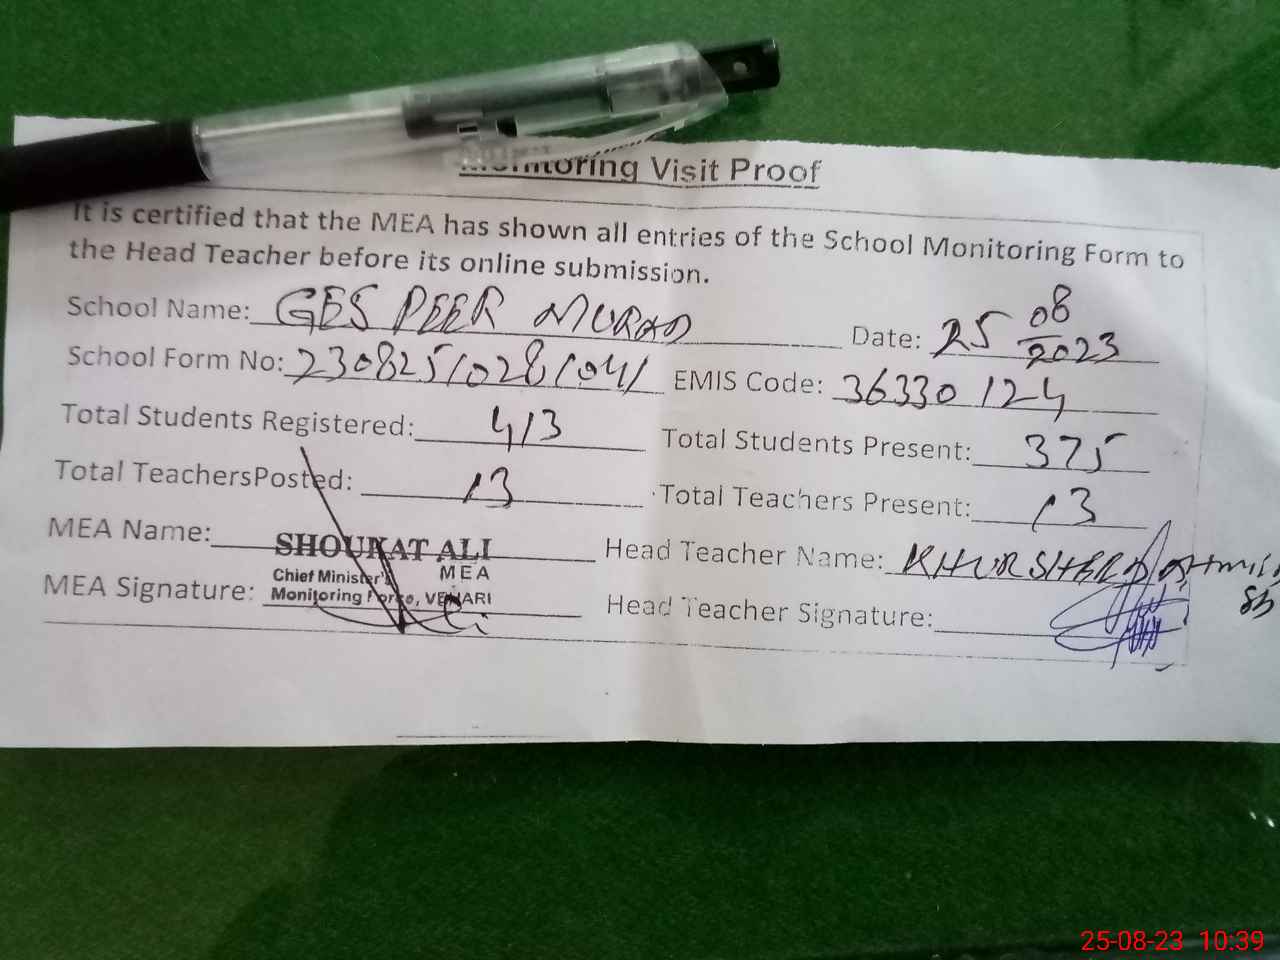 Monitoring Visit Proof
It is certified that the MEA has shown all entries of the School Monitoring Form to
the Head Teacher before its online submission.
School Name: GES PEER MURAD Date: 25 08/2023
School Form No: 230825102811041 EMIS Code: 36330124
Total Students Registered: 413 Total Students Present: 375
Total TeachersPosted: 13 Total Teachers Present: 13
MEA Name: SHOUKAT ALI Head Teacher Name: KHURSHEED
Chief Minister's MEA
Monitoring Force, VEHARI
MEA Signature: Head Teacher Signature:
25-08-23 10:39